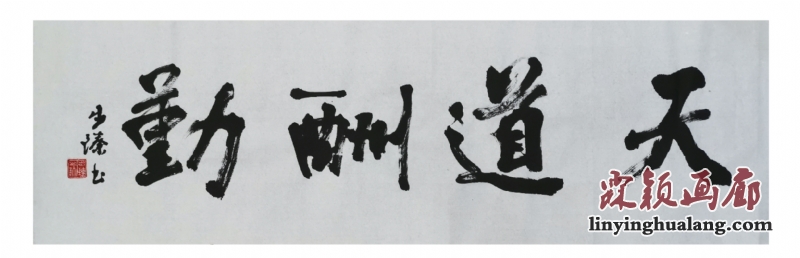 天道酬勤
霖颖画廊
linyinghualang.com